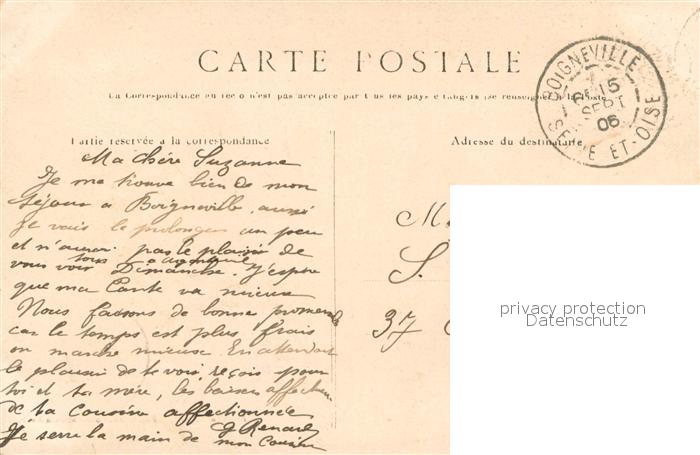 CARTE POSTALE
La Correspondance au recto n'est pas acceptée par tous les pays étrangers (se renseigner à la Poste
BOIGNEVILLE
15
SEPT
06
SEINE ET-OISE
Partie réservée à la correspondance
Adresse du destinataire
Ma chère Suzanne
Je me trouve bien de mon
séjour à Boigneville, aussi
je vais le prolonger un peu
et n'aurai pas le plaisir de
vous voir tous Dimanche. J'espère
que ma Tante va mieux
Nous faisons de bonne promenade
car le temps est plus frais
on marche mieux. En attendant
le plaisir de te voir, reçois pour
toi et ta mère, les baisers affectueux
de ta cousine affectionnée
Je serre la main de
mon cousin
G Renard
M
S.
37
privacy protection
Datenschutz